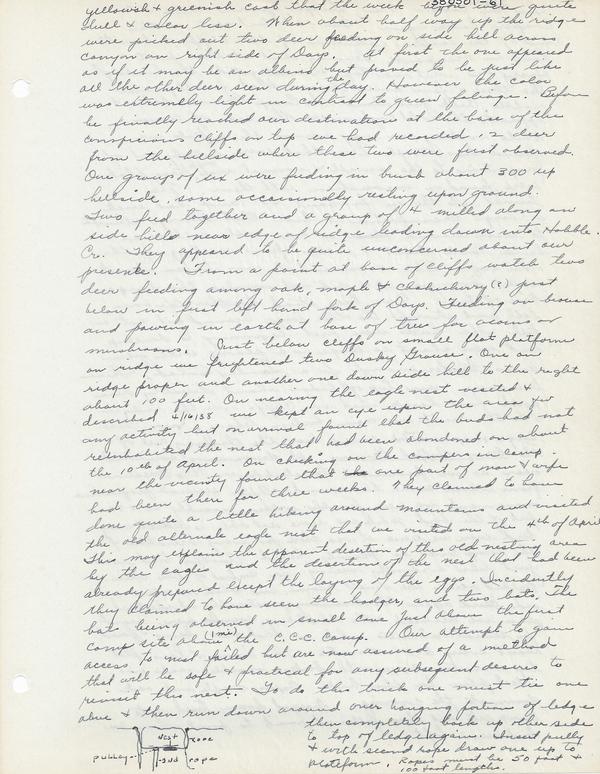 yellowish & greenish cast that the week before quite
dull & color less. When about half way up the ridge
were picked out two deer feeding on side hill across
canyon on right side of Days. At first the one appeared
as if it may be an albino but proved to be just like
all the other deer seen during the day. However the color
was extremely light in contrast to green foliage. Before
we finally reached our destination at the base of the
conspicious cliffs on top we had recorded 12 deer
from the hillside where these two were first observed.
One group of six were feeding in brush about 300 up
hillside, some occasionally resting upon ground.
Two fed together and a group of 4 milled along on
side hills near edge of ridge leading down into Hobble
Cr. They appeared to be quite unconcerned about our
presents. From a point at base of cliffs watch two
deer feeding among oak, maple & Chokecherry (?) just
below in first left hand fork of Days. Feeding on browse
and pawing in earth at base of tree for acorns or
mushrooms. Just below cliffs on small flat platform
on ridge we frightened two Dusky Grouse. One on
ridge proper and another one down side hill to the right
about 100 feet. On nearing the eagle nest visited &
described 4/16/38 we kept an eye upon the area for
any activity but on arrival found that the birds had not
reinhabited the nest that had been abandoned on about
the 10th of April. On checking on the campers in camp
near the vicinity found that one part of man & wife
had been there for three weeks. They claimed to have
done quite a little hiking around mountains and visited
the old alternate eagle nest that we visited on the 4th of April
This may explain the apparent desertion of this old nesting area
by the eagles and the desertion of the nest that had been
already prepared except the laying of the eggs. Incidently
they claimed to have seen the badger, and two bats. The
bats being observed in small cave just above the first
camp site above (1 mi) the C.C.C. Camp. Our attempt to gain
access to nest failed but are now assured of a method
that will be safe & practical for any subsequent desires to
revisit this nest. To do this trick one must tie one
above & then run down around over hanging portion of ledge
then completely back up other side
to top of ledge again. Insert pully
& with second rope draw one up to
platform. Ropes must be 50 feet &
100 foot lengths.
nest rope
pulley 2nd rope